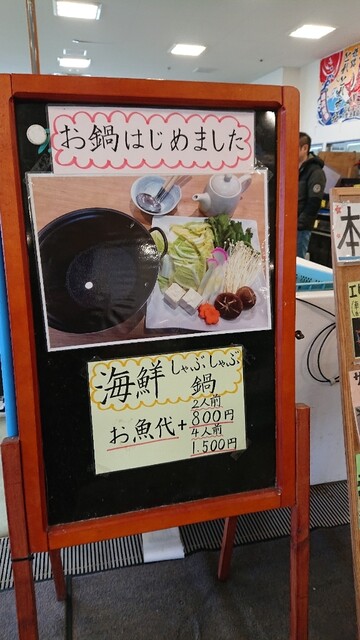 お鍋はじめました
海鮮しゃぶしゃぶ
鍋
2人前
お魚代+800円
4人前
1.500円
本